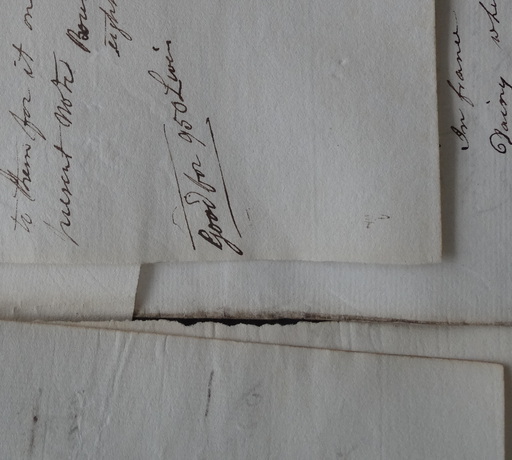 to them for it on
present Note
eigh
Good for 950 Livis
In france
Dainy whi